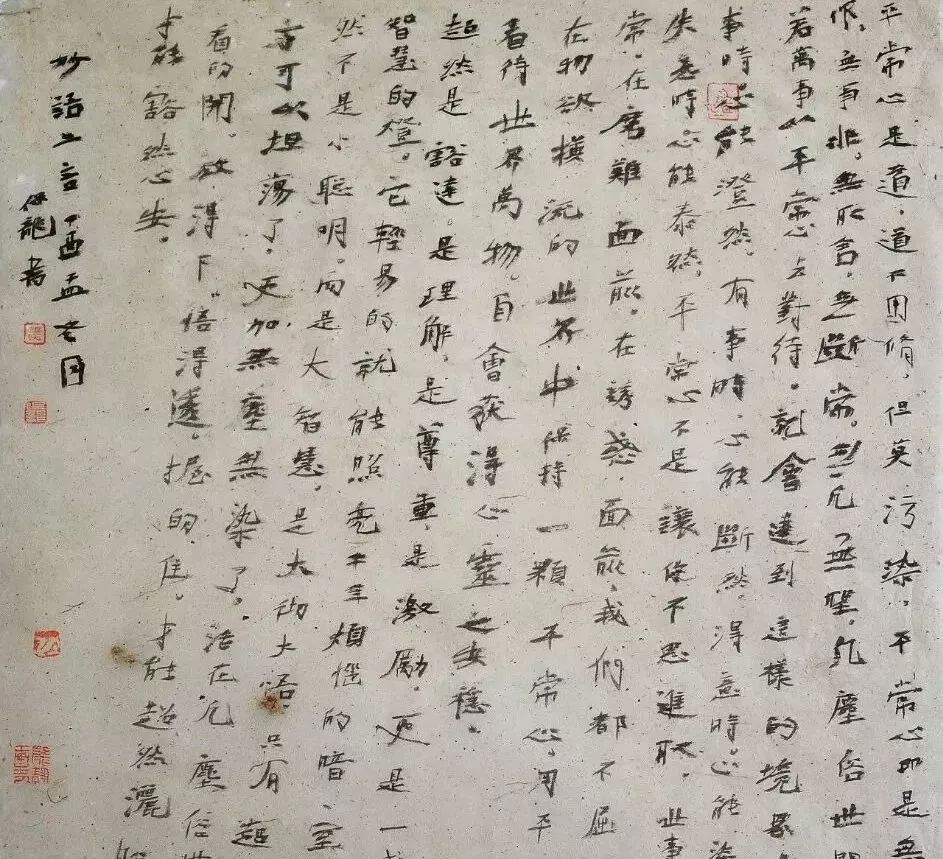 平常心是道，道不用脩，但莫污染，平常心即是無
作，無事非，無取舍，無斷常，無凡無聖，凡塵俗世間
若萬事以平常心去對待。就會達到這樣的境界
事時心能澄然。有事時，心能斷然。得意時。心能淡
失意時心能泰然，平常心不是讓你不思進取，世事
常，在磨難面前，在誘惑面前，我們都不屈
在物欲橫流的世界中保持一顆平常心，用平
看待世界萬物。自會获得心靈之安穩。
超然是豁達。是理解，是尊重，是激勵，更是一
智慧的燈。它輕易的就能照亮人生煩惱的暗室
然不是小聰明。而是大智慧，是大徹大悟，只有超
方可以坦蕩了，更加無塵無染了。活在凡塵俗世
看的開。放得下。悟得透。握的住。才能超然灑
才能豁然心安。
妙語之言 丁酉孟冬月
佛龍書